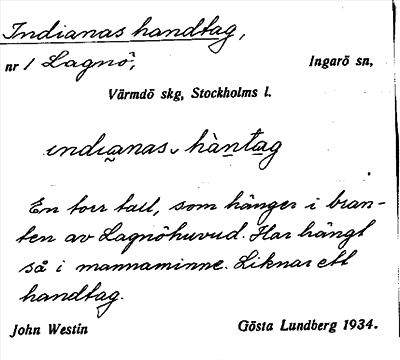 Indianas handtag,
nr 1 Lagnö, Ingarö sn,
Värmdö skg, Stockholms l.
indianas hàntag
En torr tall, som hänger i bran-
ten av Lagnöhuvud. Har hängt
så i mannaminne. Liknar ett
handtag.
John Westin Gösta Lundberg 1934.